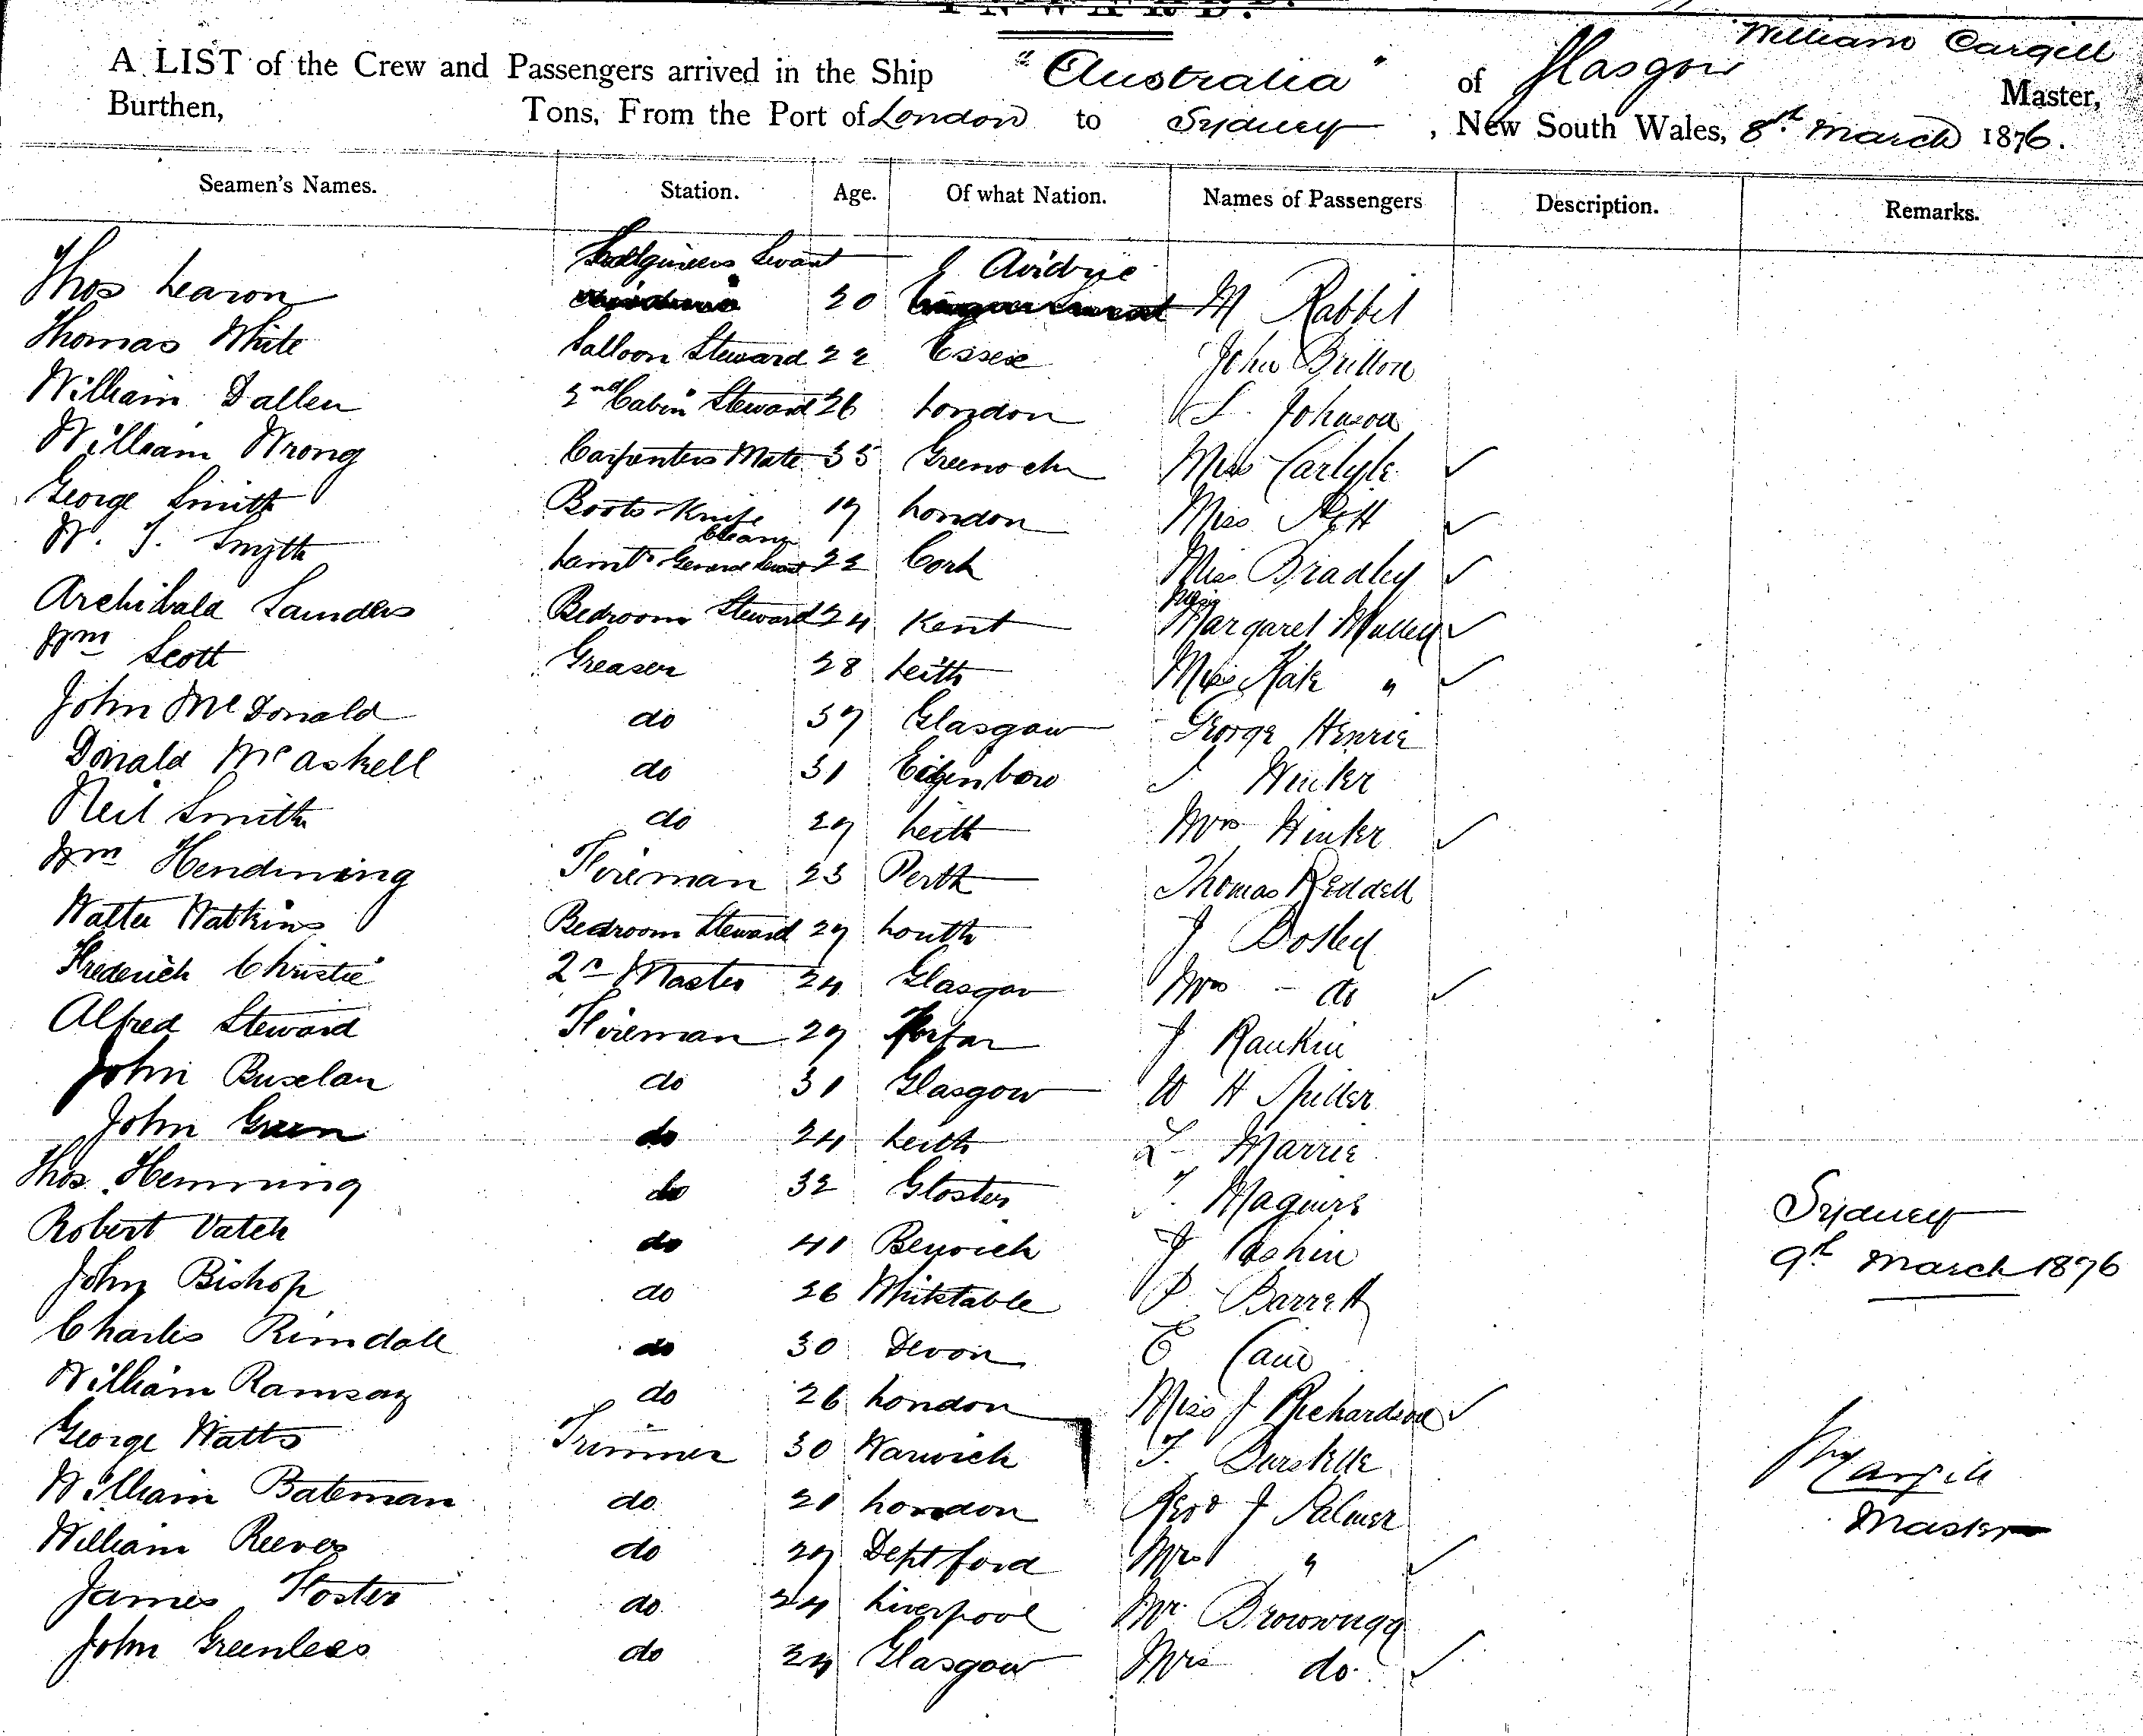 A LIST of the Crew and Passengers arrived in the Ship "Australia" of Glasgow William Cargill Master,
Burthen, Tons, From the Port of London to Sydney, New South Wales, 8th March 1876.
Seamen's Names. Station. Age. Of what Nation. Names of Passengers Description. Remarks.
Thos 20 M Rabbit
Thomas White Salloon Steward 22 Essex John Britton
William Dallen 2nd Cabin Steward 26 London S. Johnson
William Wrong Carpenters Mate 35 Greenock Miss Carlyle ✓
George Smith Boots Knife Cleaner 19 London Miss ✓
W. J. Smyth 22 Cork Miss Bradley ✓
Archibald Saunders Bedroom Steward 24 Kent Miss Margaret ✓
Wm Scott Greaser 28 Leith Miss Kate " ✓
John McDonald do 37 Glasgow George Henrie
Donald McAskell do 31 Hinter
Neil Smith do 29 Leith Mrs Hinter ✓
Wm Hendining Fireman 23 Perth Thomas Reddell
Walter Watkins Bedroom Steward 29 Louth J
Frederick Christie 2r Master 24 Glasgow Mrs - do ✓
Alfred Steward Fireman 29 Forfar J Rankin
John Buxelan do 31 Glasgow W H Spiller
John Green do 24 Leith L Marrie
Thos Hemming do 32 Gloster T. Maguire
Robert Vatch do 41 Berwick J Cashin
Sydney
9th March 1876
John Bishop do 26 Whitstable P Barrett
Charles Rimdall do 30 Devon E Cain
William Ramsay do 26 London Miss J Richardson ✓
George Watts Trimmer 30 Warwick T.
Wm Cargill
Master
William Bateman do 21 London Revd J Palmer
William Reeves do 29 Deptford Mrs " ✓
James Foster do 24 Liverpool Mr. Brownrigg
John Greenlees do 24 Glasgow Mrs do ✓